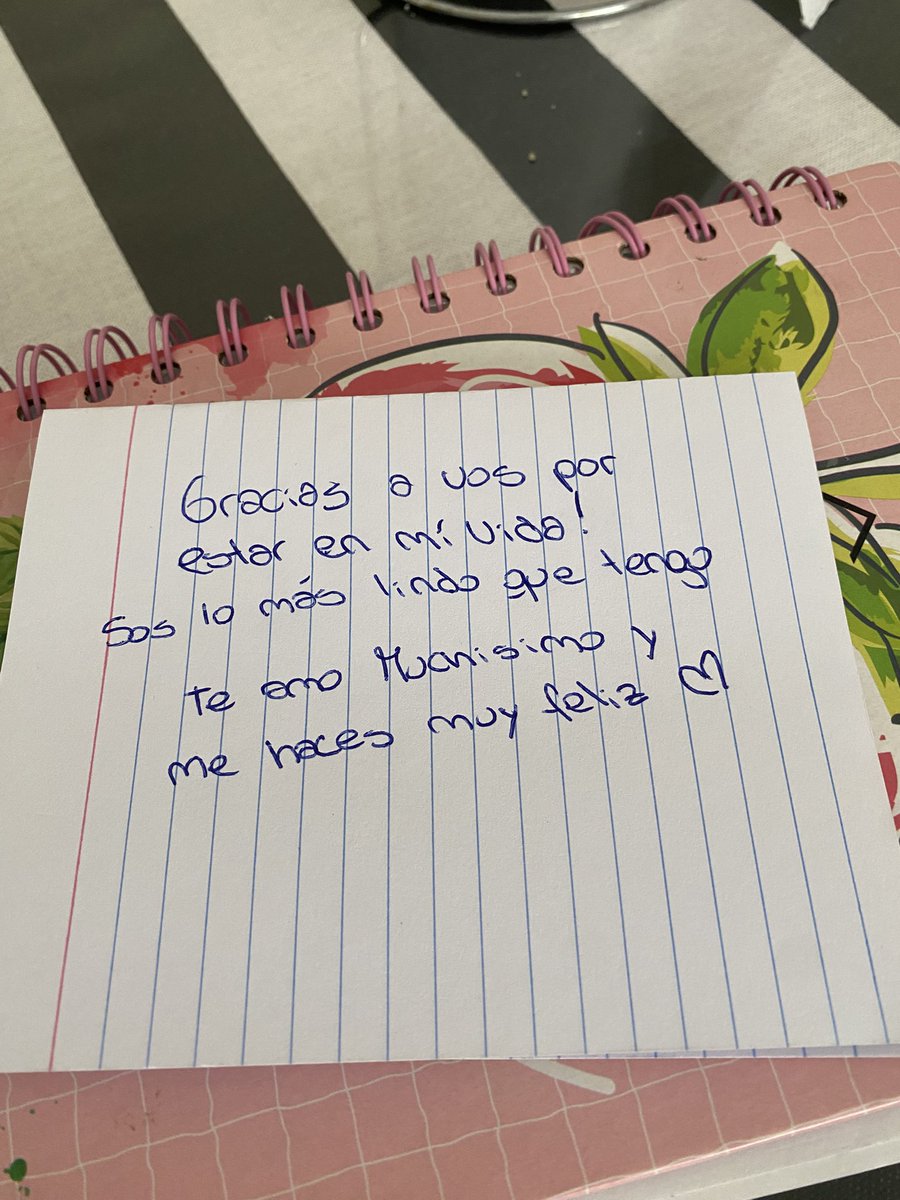 Gracias a vos por
estar en mi vida!
Sos lo más lindo que tengo
te amo Muchisimo y
me haces muy feliz ♡